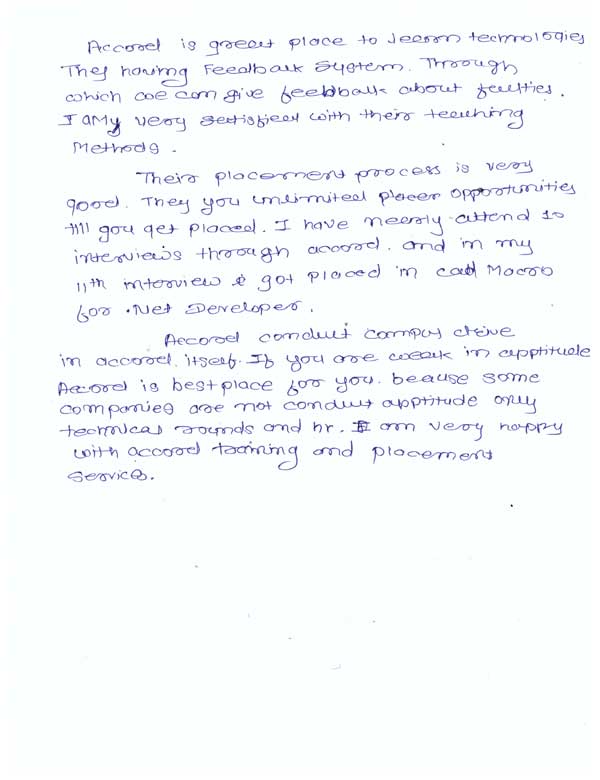 Accord is great place to learn technologies
They having Feedback System. Through
which we can give feedback about faulties.
I aMy very setisfied with their teaching
Methods.
Their placement process is very
good. They you unlimited placer opportunities
till you get placed. I have neerly attend 10
interviews through accord. and in my
11th interview I got placed in cad Macro
for .Net Developer.
Accord conduit campus drive
in accord itself. If you are weak in apptitude
Accord is best place for you. beause some
companies are not conduit apptitude only
technical rounds and hr. I am very happy
with accord training and placement
services.